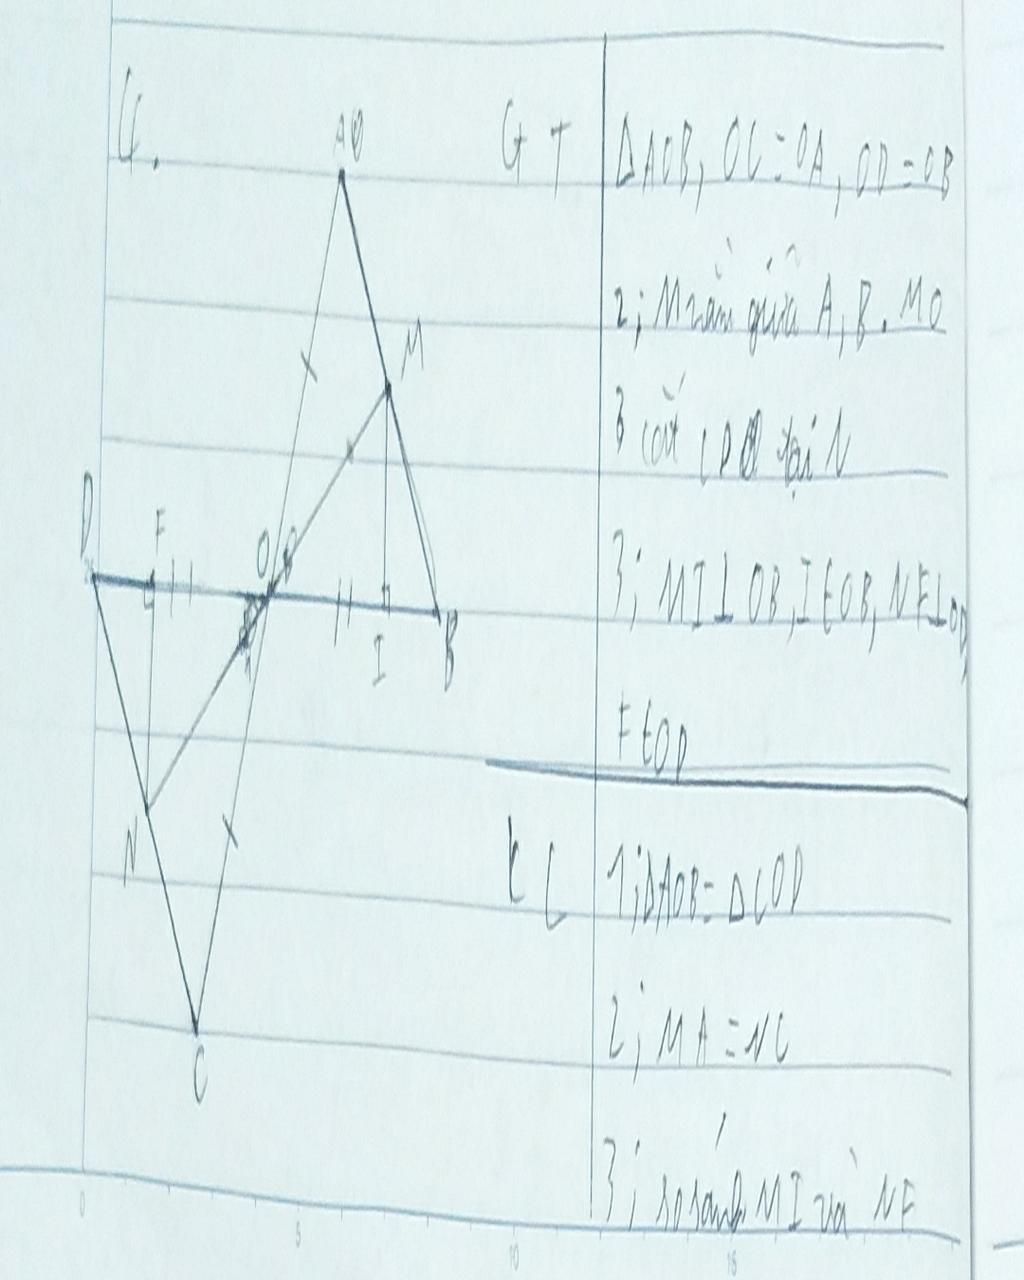 4.
A
M
D
F
O
I
B
N
C
GT
ΔAOB, OC=OA, OD=OB
2; M nằm giữa A, B. MO
cắt CD tại N
3; MI⊥OB, I∈OB, NF⊥OD,
F∈OD
KL
1; ΔAOB=ΔCOD
2; MA=NC
3; so sánh MI và NF
0 5 10 15